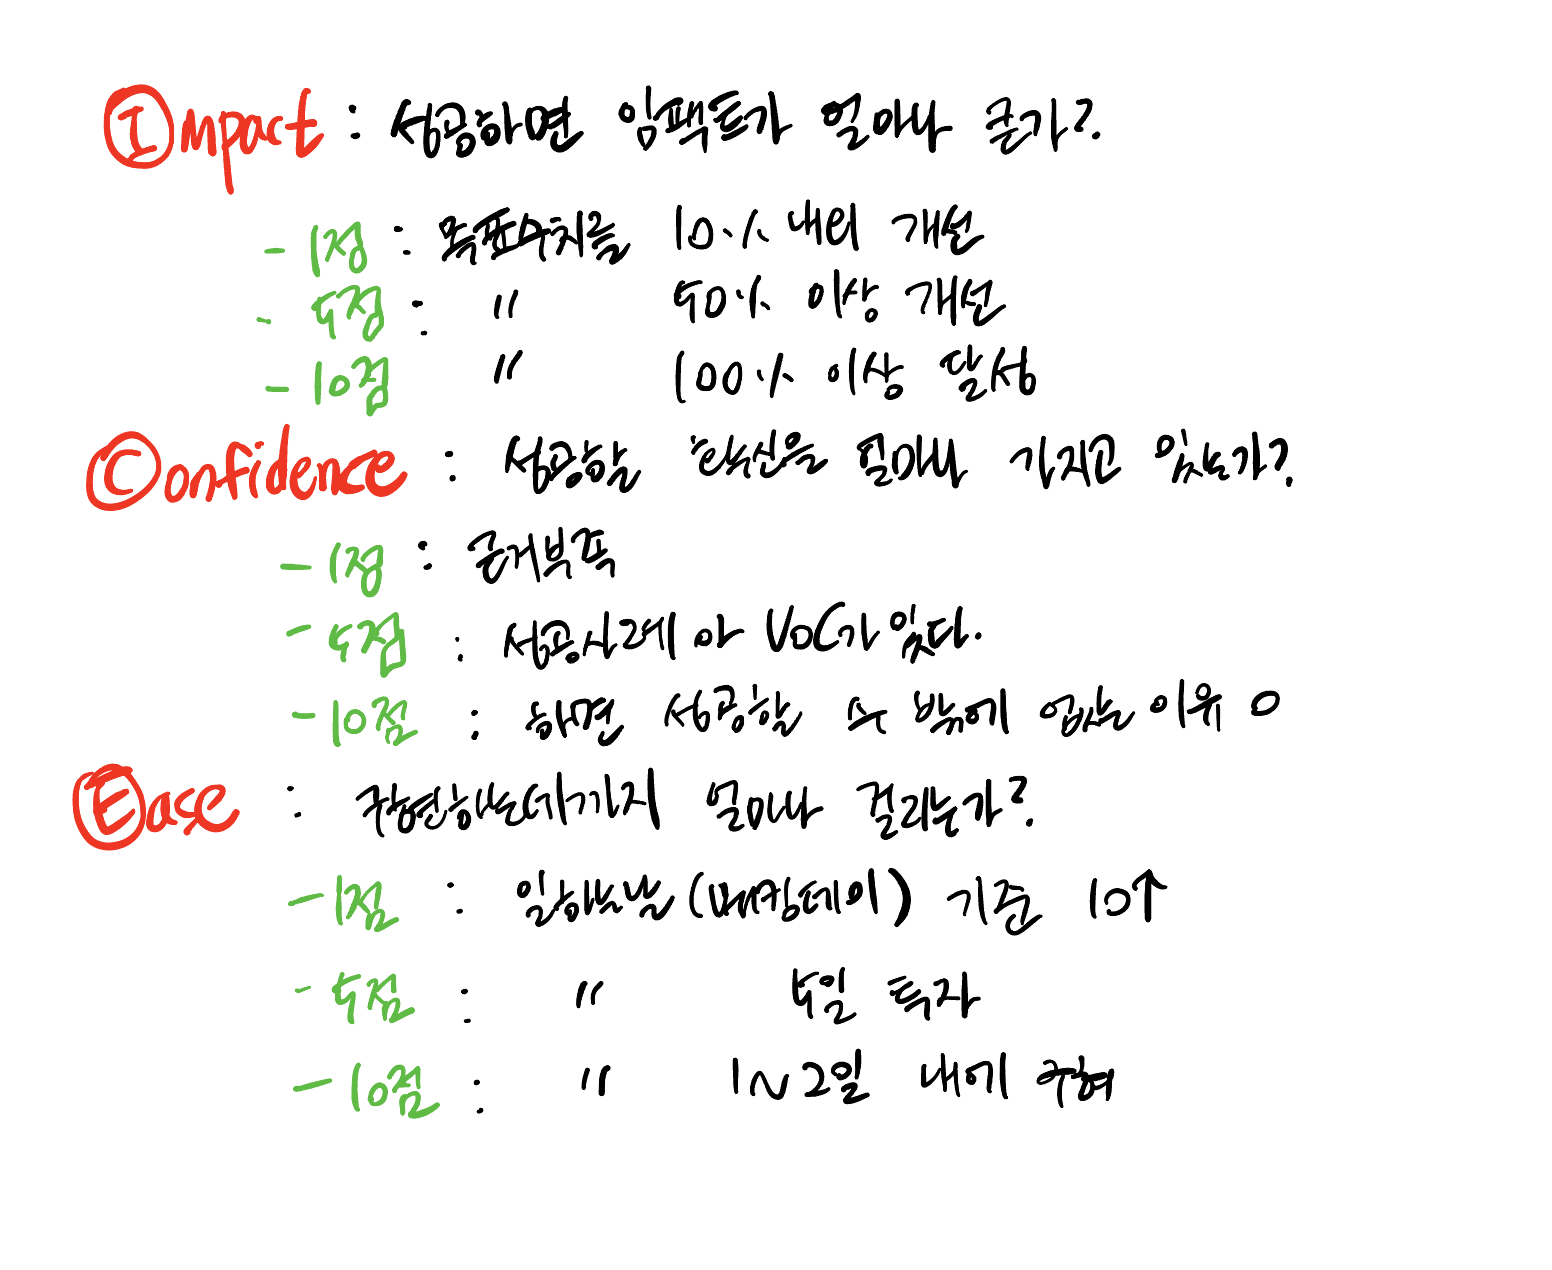 Impact : 성공하면 임팩트가 얼마나 큰가?
- 1점 : 목표수치를 10% 내외 개선
- 5점 : " 50% 이상 개선
- 10점 " 100% 이상 달성
Confidence : 성공할 확신을 얼마나 가지고 있는가?
- 1점 : 근거부족
- 5점 : 성공사례 아 VOC가 있다.
- 10점 : 하면 성공할 수 밖에 없는 이유 O
Ease : 구현하는데까지 얼마나 걸리는가?
- 1점 : 일하는날 (워킹데이) 기준 10↑
- 5점 : " 5일 투자
- 10점 : " 1~2일 내에 구현